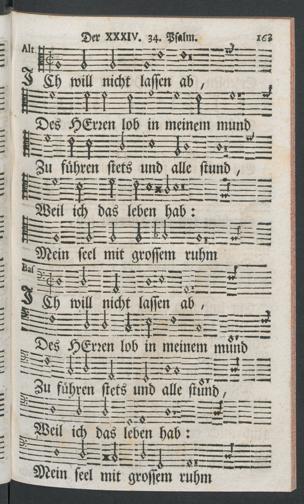 Der XXXIV. 34. Psalm. 163
Alt
ICh will nicht lassen ab,
Des HErren lob in meinem mund
Zu führen stets und alle stund,
Weil ich das leben hab:
Mein seel mit grossem ruhm
Baß
ICh will nicht lassen ab,
Des HErren lob in meinem mund
Zu führen stets und alle stund,
Weil ich das leben hab:
Mein seel mit grossem ruhm